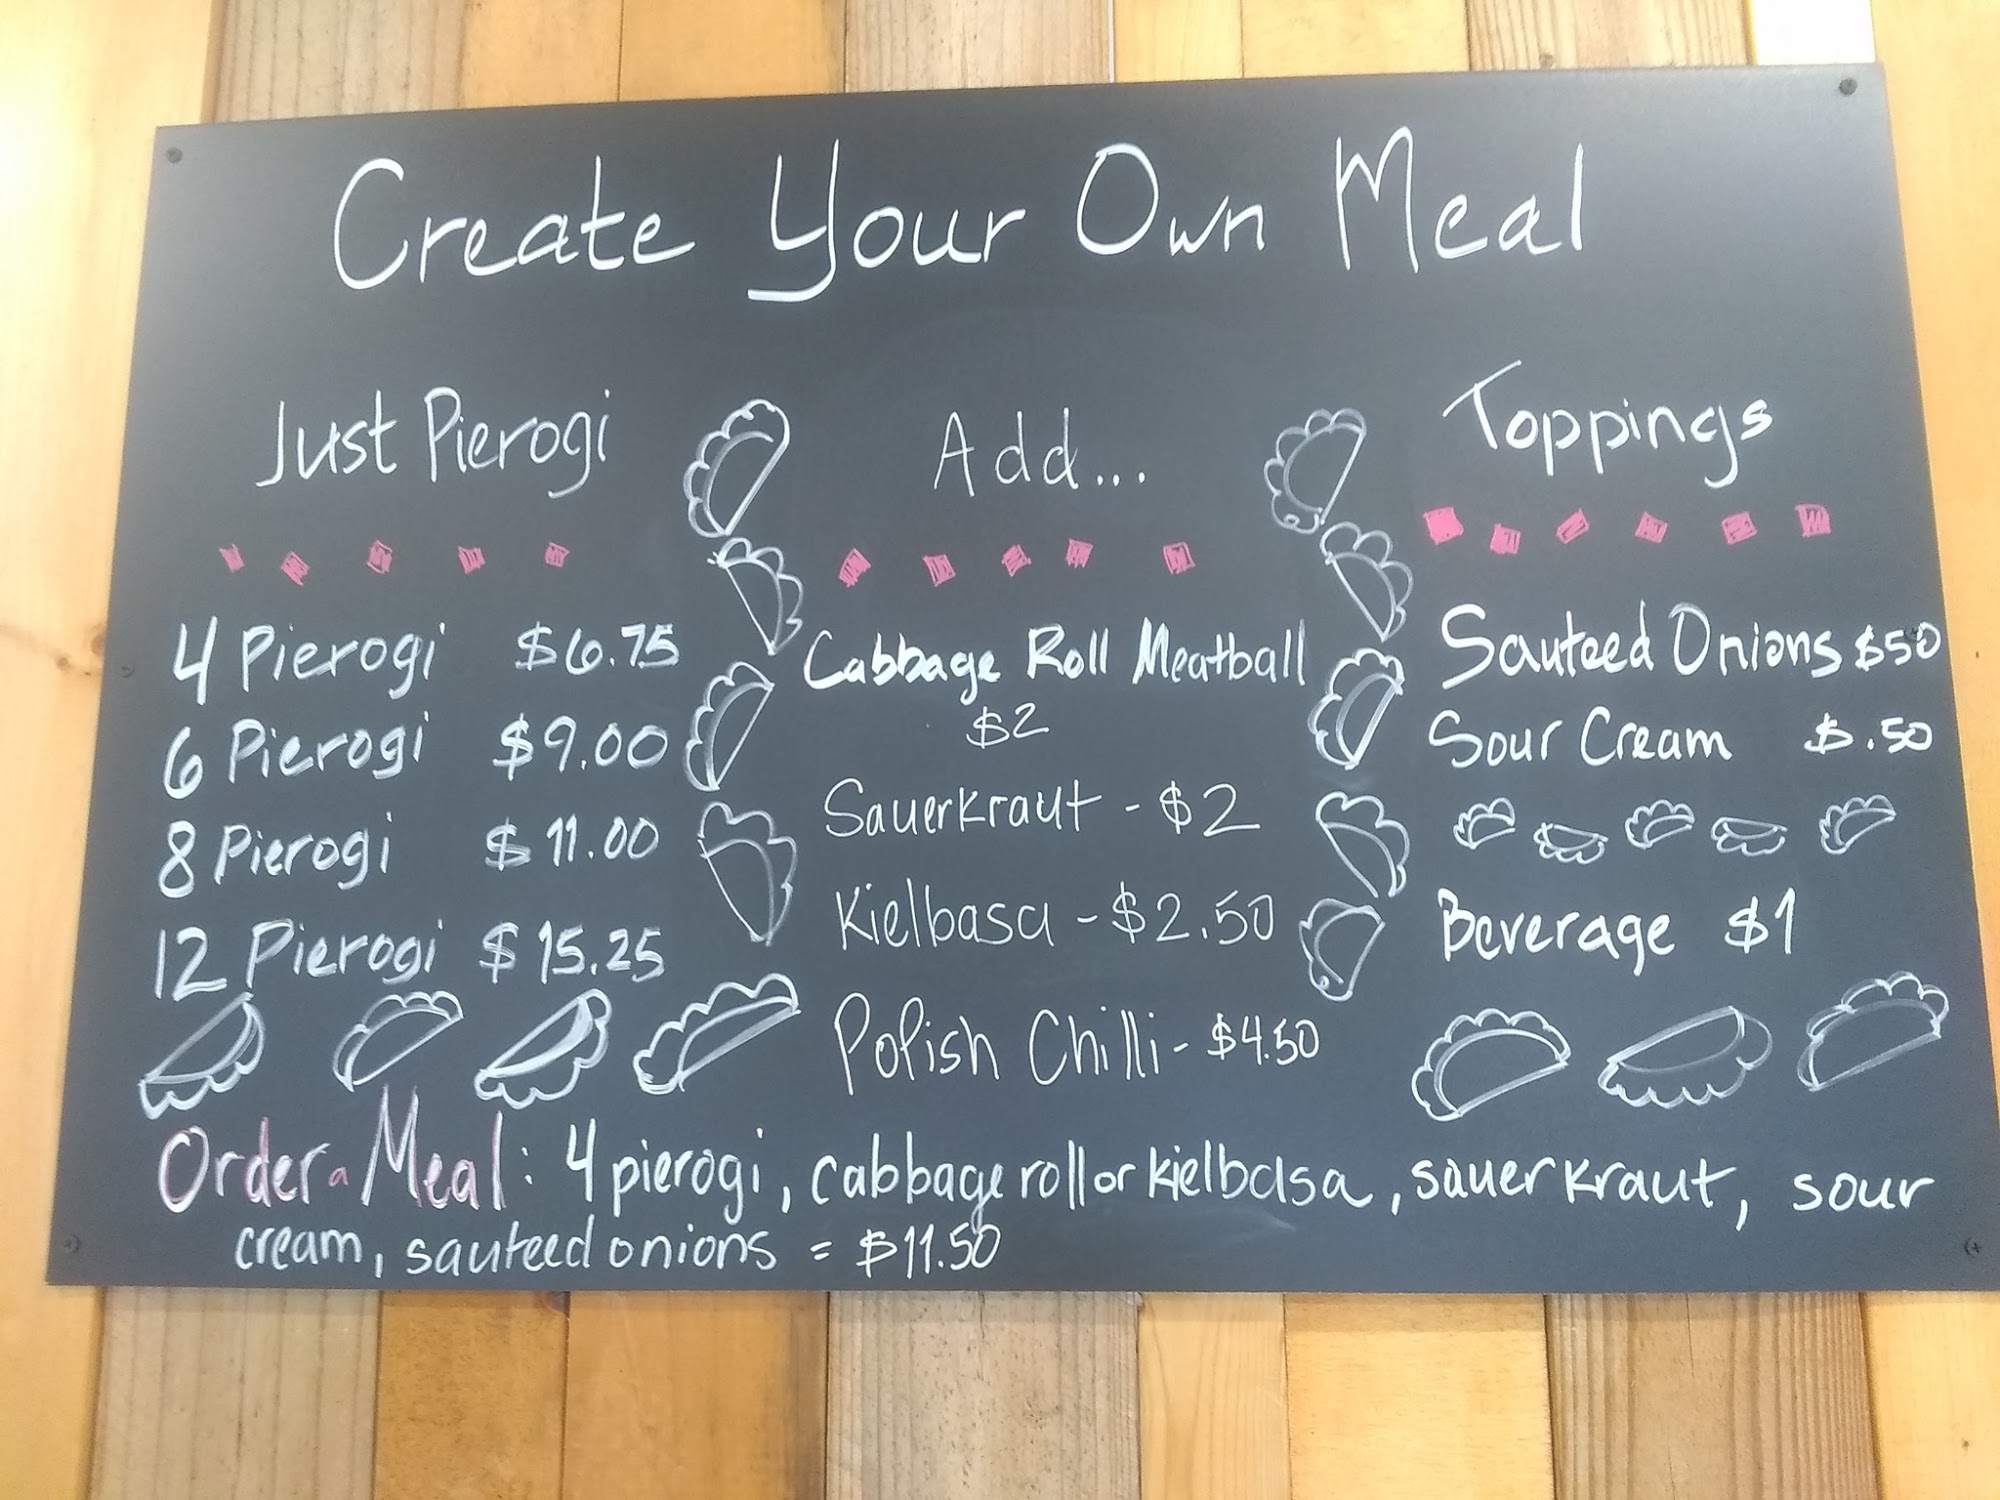 Create Your Own Meal
Just Pierogi
4 Pierogi $6.75
6 Pierogi $9.00
8 Pierogi $11.00
12 Pierogi $15.25
Add...
Cabbage Roll Meatball
$2
Sauerkraut - $2
Kielbasa - $2.50
Polish Chilli - $4.50
Toppings
Sauteed Onions $50
Sour Cream $.50
Beverage $1
Order a Meal: 4 pierogi, cabbage roll or kielbasa, sauerkraut, sour
cream, sauteed onions = $11.50